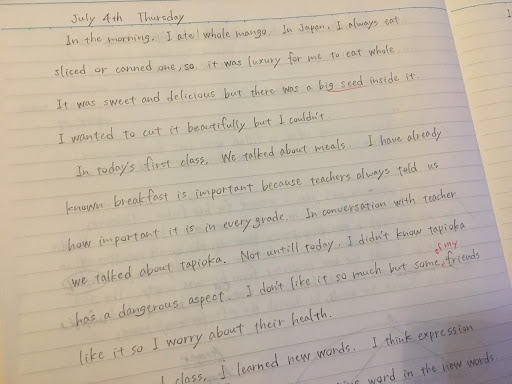 July 4th Thursday
In the morning, I ate whole mango. In Japan, I always eat
sliced or canned one, so it was luxury for me to eat whole.
It was sweet and delicious but there was a big seed inside it.
I wanted to cut it beautifully but I couldn't
In today's first class, We talked about meals. I have already
known breakfast is important because teachers always told us
how important it is in every grade. In conversation with teacher
we talked about tapioka. Not untill today, I didn't know tapioka
has a dangerous aspect. I don't like it so much but some of my friends
like it so I worry about their health.
class, I learned new words. I think expression
word in the new words